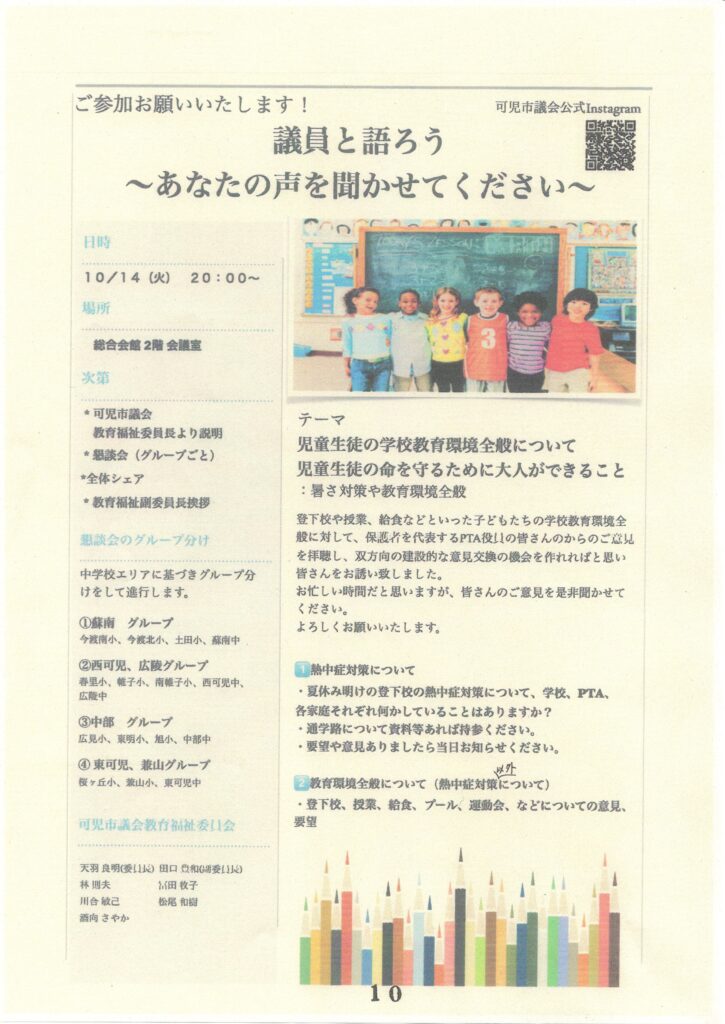 ご参加お願いいたします！
可児市議会公式Instagram
議員と語ろう
〜あなたの声を聞かせてください〜
日時
10／14（火） 20：00〜
場所
総合会館 2階 会議室
次第
* 可児市議会
教育福祉委員長より説明
* 懇談会（グループごと）
*全体シェア
* 教育福祉副委員長挨拶
懇談会のグループ分け
中学校エリアに基づきグループ分
けをして進行します。
①蘇南 グループ
今渡南小、今渡北小、土田小、蘇南中
②西可児、広陵グループ
春里小、帷子小、南帷子小、西可児中、
広陵中
③中部 グループ
広見小、東明小、旭小、中部中
④ 東可児、兼山グループ
桜ヶ丘小、兼山小、東可児中
可児市議会教育福祉委員会
天羽 良明(委員長) 田口 豊和(副委員長)
林 則夫 冨田 牧子
川合 敏己 松尾 和樹
酒向 さやか
3
テーマ
児童生徒の学校教育環境全般について
児童生徒の命を守るために大人ができること
：暑さ対策や教育環境全般
登下校や授業、給食などといった子どもたちの学校教育環境全
般に対して、保護者を代表するPTA役員の皆さんのからのご意見
を拝聴し、双方向の建設的な意見交換の機会を作れればと思い
皆さんをお誘い致しました。
お忙しい時間だと思いますが、皆さんのご意見を是非聞かせて
ください。
よろしくお願いいたします。
1 熱中症対策について
・夏休み明けの登下校の熱中症対策について、学校、PTA、
各家庭それぞれ何かしていることはありますか？
・通学路について資料等あれば持参ください。
・要望や意見ありましたら当日お知らせください。
以外
2 教育環境全般について（熱中症対策について）
・登下校、授業、給食、プール、運動会、などについての意見、
要望
10